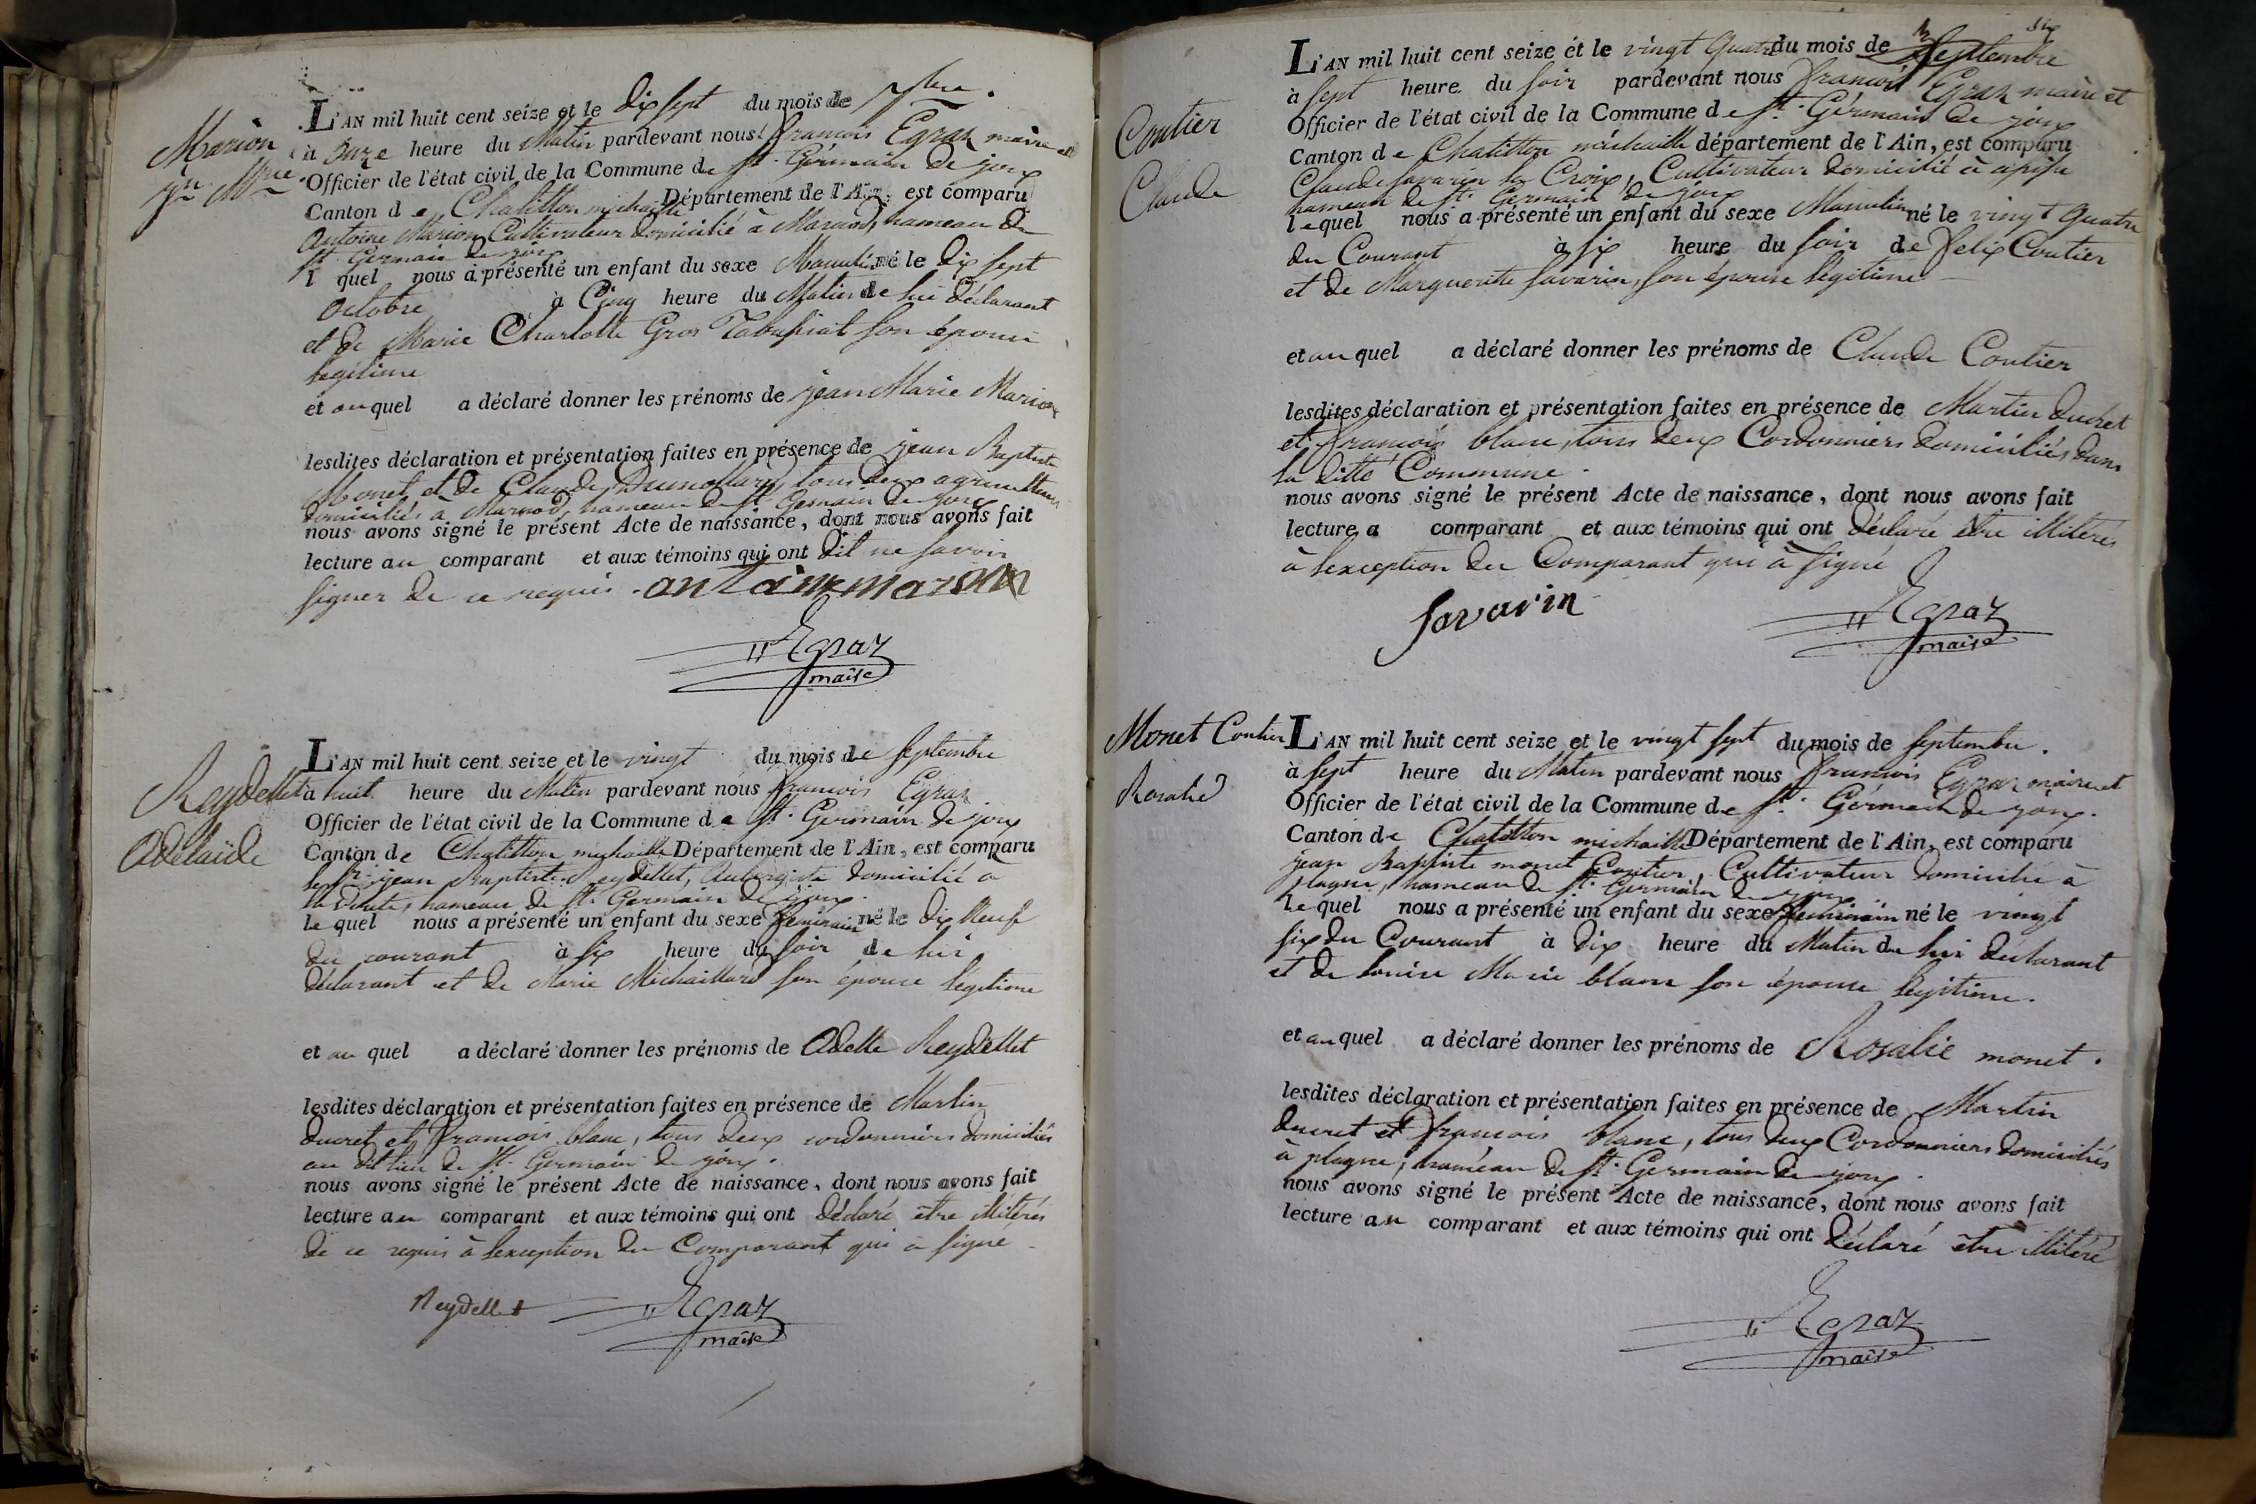 Marion
jn. Mrie
L'AN mil huit cent seize et le dix sept du mois de 7bre.
à onze heure du Matin pardevant nous françois Egraz maire et
Officier de l'état civil de la Commune de st. Gérmain de joux
Canton de Chatillon michaille Département de l'Ain, est comparu
Antoine Marion Cultivateur domicilié à Marnod, hameau de
st. Germain de joux
l quel nous a présenté un enfant du sexe Masculin né le dix sept
octobre à Cinq heure du Matin de lui déclarant
et de Marie Charlotte Gros Tabussiat son épouse
legitime
et au quel a déclaré donner les prénoms de jean Marie Marion
lesdites déclaration et présentation faites en présence de jean Baptiste
Monet et de Claude tous deux agriculteurs
domiciliés à Marnod, hameau de st. Germain de joux
nous avons signé le présent Acte de naissance, dont nous avons fait
lecture au comparant et aux témoins qui ont dit ne savoir
signer de ce requis. antoine marion
Egraz
maire
Reydellet
Adelaïde
L'AN mil huit cent seize et le vingt du mois de septembre
à huit heure du Matin pardevant nous françois Egraz
Officier de l'état civil de la Commune de st. Germain de joux
Canton de Chatillon michaille Département de l'Ain, est comparu
le sr. jean Baptiste Reydellet, Aubergiste domicilié a
la voute, hameau de st. Germain de joux.
le quel nous a présenté un enfant du sexe feminin né le dix Neuf
du courant à six heure du soir de lui
déclarant et de Marie Michaillard son épouse légitime
et au quel a déclaré donner les prénoms de Adelle Reydellet
lesdites déclaration et présentation faites en présence de Martin
ducret et françois blanc, tous deux cordonniers domiciliés
au dit lieu de st. Germain de joux.
nous avons signé le présent Acte de naissance, dont nous avons fait
lecture au comparant et aux témoins qui ont déclaré être illiterés
de ce requis à l'exception du Comparant qui a signé
Reydellet
Egraz
maire
Coutier
Claude
L'AN mil huit cent seize et le vingt quatre du mois de Septembre
à sept heure du soir pardevant nous françois Egraz maire et
Officier de l'état civil de la Commune de st. Gérmain de joux
Canton de Chatillon michaille département de l'Ain, est comparu
Claude savarin la Croix, Cultivateur domicilié à
hameau de st. Germain de joux
lequel nous a présenté un enfant du sexe Masculin né le vingt quatre
du Courant à six heure du soir de felix Coutier
et de Marguerite savarin, son épouse legitime
et au quel a déclaré donner les prénoms de Claude Coutier
lesdites déclaration et présentation faites en présence de Martin ducret
et françois blanc, tous deux Cordonniers domiciliés dans
la ditte Commune.
nous avons signé le présent Acte de naissance, dont nous avons fait
lecture a comparant et aux témoins qui ont déclaré être illiterés
à l'exception du Comparant qui à signé
savarin
Egraz
maire
Monet Coutier
Rosalie
L'AN mil huit cent seize et le vingt sept du mois de septembre.
à sept heure du Matin pardevant nous françois Egraz maire et
Officier de l'état civil de la Commune de st. Gérmain de joux.
Canton de Chatillon michaille Département de l'Ain, est comparu
jean Baptiste monet Coutier, Cultivateur domicilié à
plagne, hameau de st. Germain de joux
le quel nous a présenté un enfant du sexe feminin né le vingt
six du Courant à dix heure du Matin de lui déclarant
et de Louise Marie blanc son épouse legitime.
et au quel a déclaré donner les prénoms de Rosalie monet.
lesdites déclaration et présentation faites en présence de Martin
ducret et françois blanc, tous deux Cordonniers domiciliés
à plagne, haméau de st. Germain de joux.
nous avons signé le présent Acte de naissance, dont nous avons fait
lecture au comparant et aux témoins qui ont déclaré être illiteré
Egraz
maire